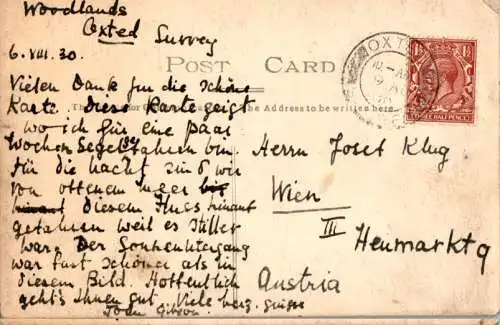 Woodlands
Oxted Surrey
6. VIII. 30.
POST CARD
Vielen Dank für die schöne
Karte. Diese Karte zeigt
The Address to be written here.
wo ich für eine paar
Wochen Segelfahren bin.
Für die Nacht sind wir
von offenem Meer bis
hinauf diesem Fluss hinauf
gefahren weil es stiller
war. Der Sonnenuntergang
war fast schöner als in
diesem Bild. Hoffentlich
geht's Ihnen gut. Viele herz. Grüsse
Joan Gibson.
Herrn Josef Klug
Wien
III
Heumarkt 9
Austria
OXTED
THREE HALF PENCE